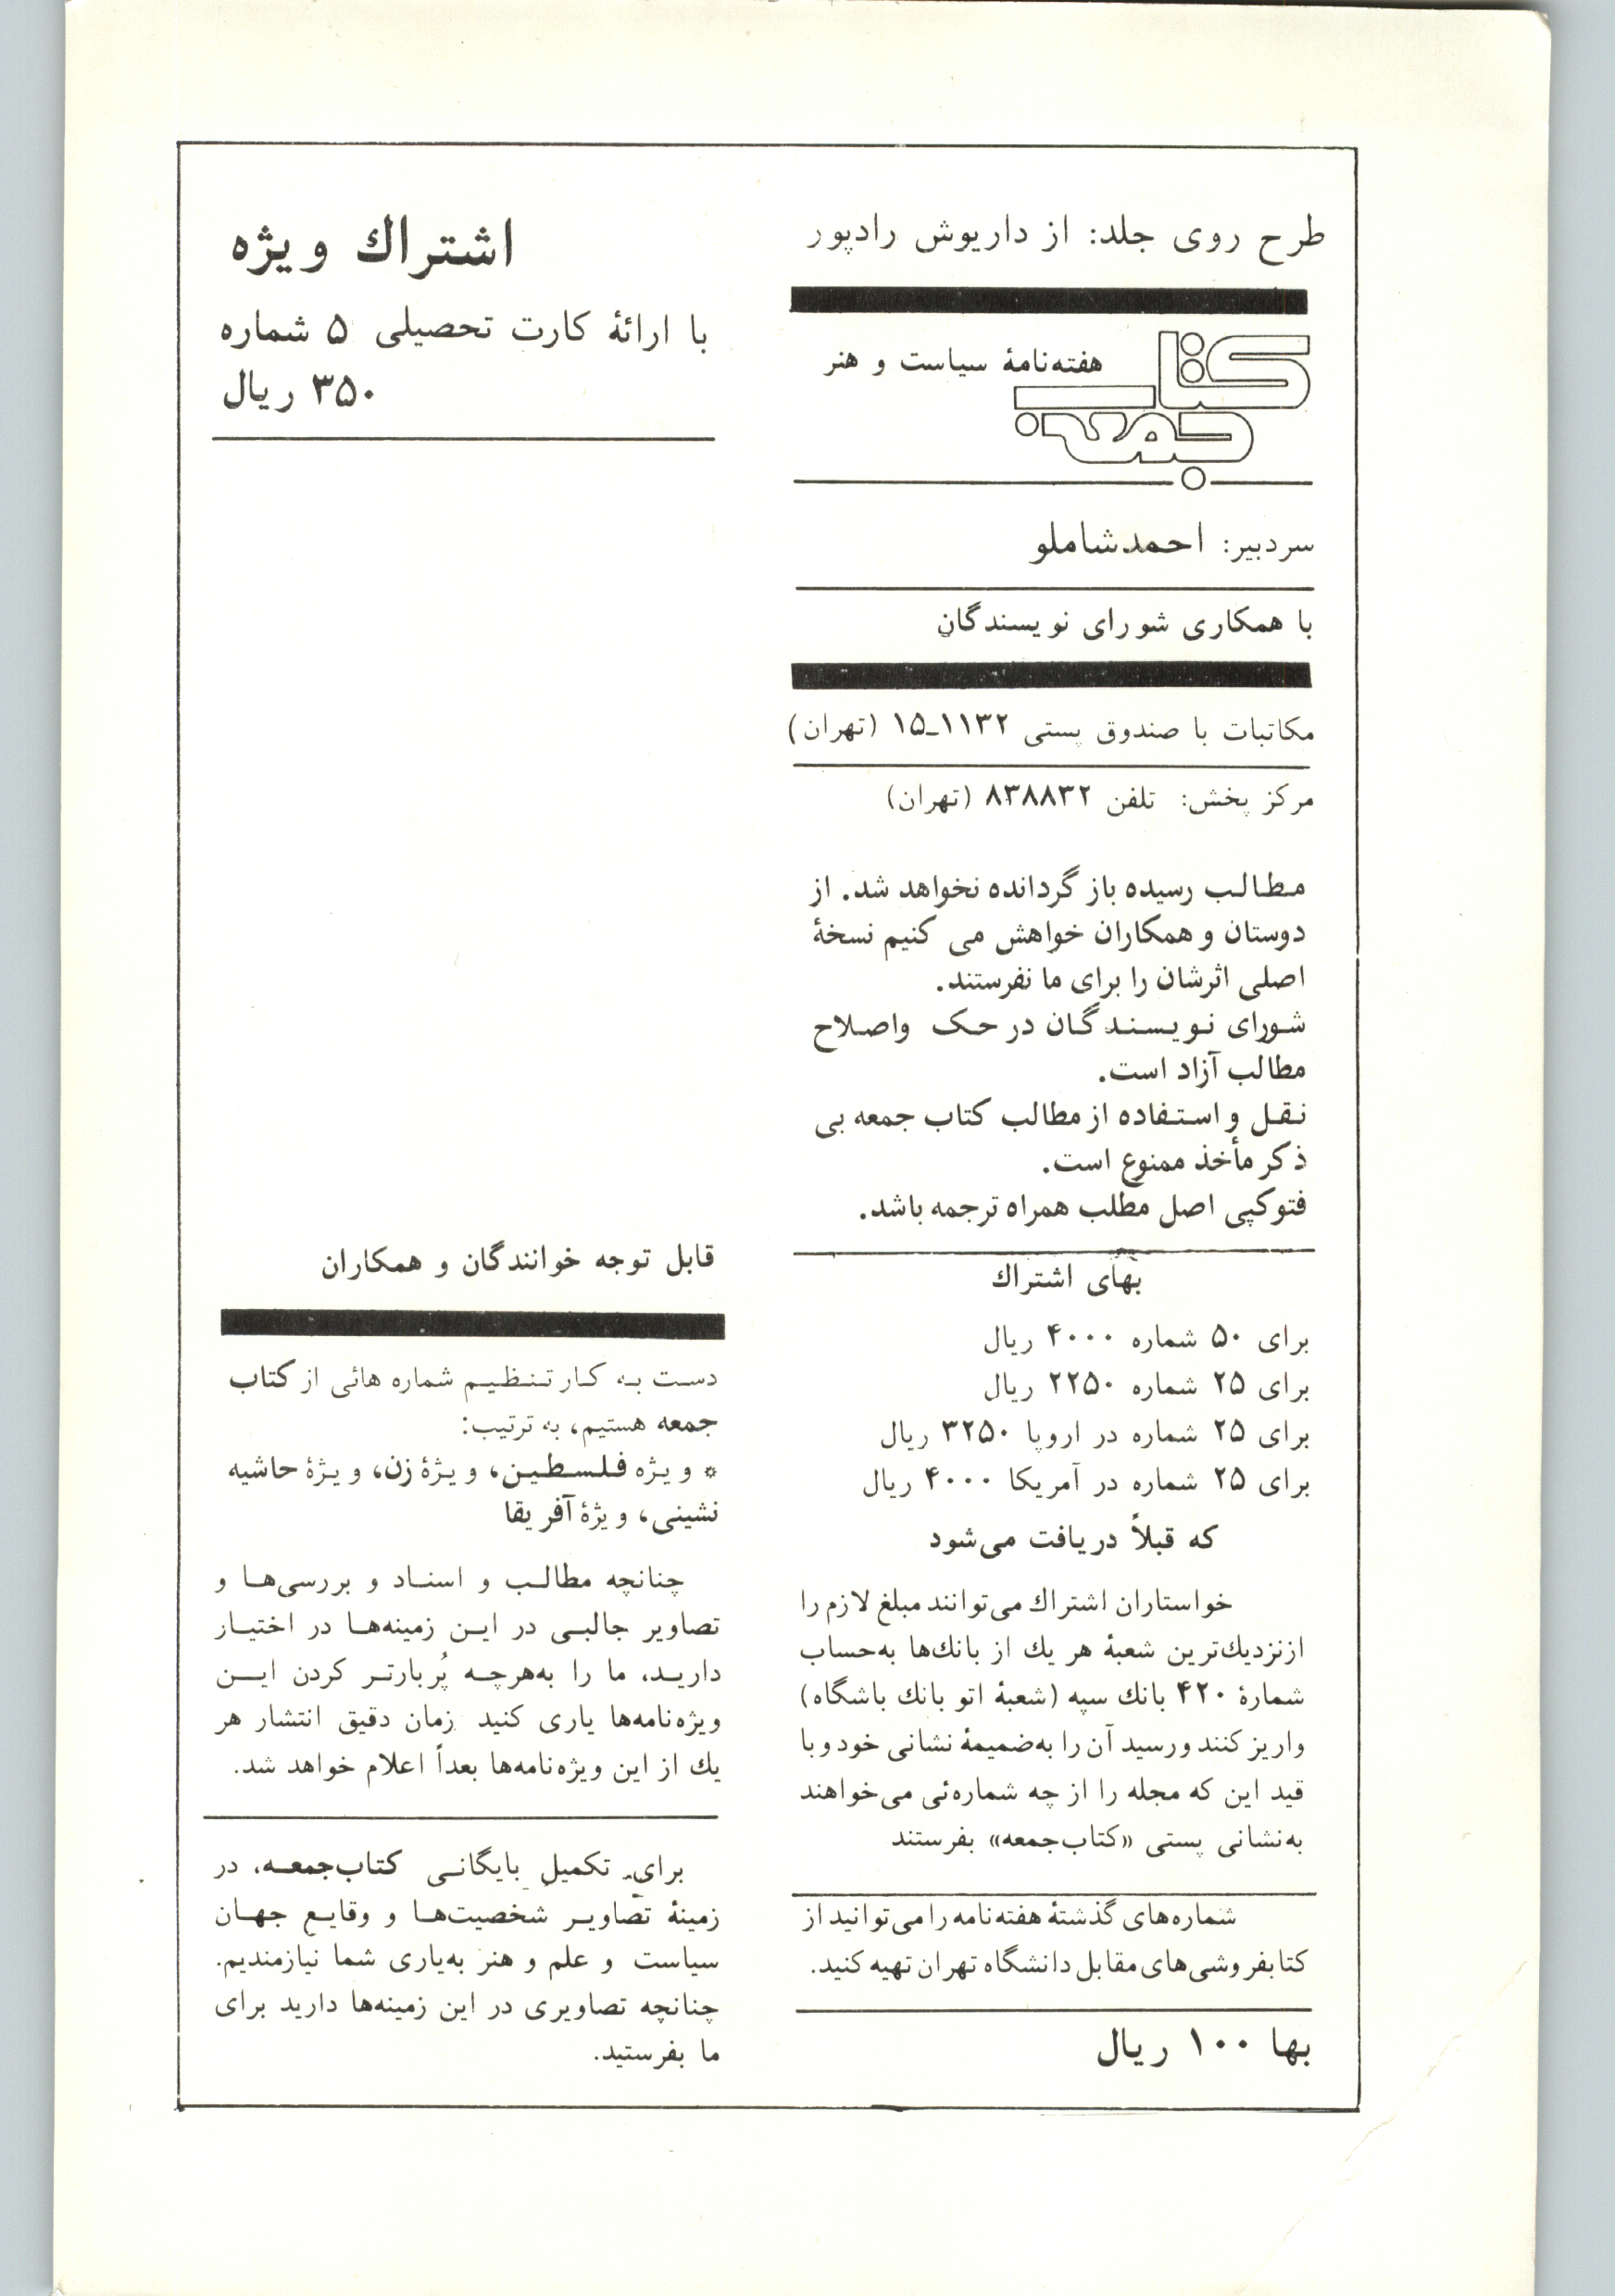 طرح روی جلد: از داریوش رادپور
هفته‌نامهٔ سیاست و هنر
کتاب
جمعه
سردبیر: احمدشاملو
با همکاری شورای نویسندگان
مکاتبات با صندوق پستی ۱۱۳۲-۱۵ (تهران)
مرکز پخش: تلفن ۸۳۸۸۳۲ (تهران)
مطالب رسیده باز گردانده نخواهد شد. از
دوستان و همکاران خواهش می کنیم نسخهٔ
اصلی اثرشان را برای ما نفرستند.
شورای نویسندگان در حک واصلاح
مطالب آزاد است.
نقل و استفاده از مطالب کتاب جمعه بی
ذکر مأخذ ممنوع است.
فتوکپی اصل مطلب همراه ترجمه باشد.
بهای اشتراك
برای ۵۰ شماره ۴۰۰۰ ریال
برای ۲۵ شماره ۲۲۵۰ ریال
برای ۲۵ شماره در اروپا ۳۲۵۰ ریال
برای ۲۵ شماره در آمریکا ۴۰۰۰ ریال
که قبلاً دریافت می‌شود
خواستاران اشتراك می‌توانند مبلغ لازم را
ازنزدیك‌ترین شعبهٔ هر یك از بانك‌ها به‌حساب
شمارهٔ ۴۲۰ بانك سپه (شعبهٔ اتو بانك باشگاه)
واریز کنند ورسید آن را به‌ضمیمهٔ نشانی خود وبا
قید این که مجله را از چه شماره‌ئی می‌خواهند
به‌نشانی پستی «کتاب‌جمعه» بفرستند
شماره‌های گذشتهٔ هفته‌نامه را می‌توانید از
کتابفروشی‌های مقابل دانشگاه تهران تهیه کنید.
بها ۱۰۰ ریال
اشتراك ویژه
با ارائهٔ کارت تحصیلی ۵ شماره
۳۵۰ ریال
قابل توجه خوانندگان و همکاران
دست به کار تنظیم شماره هائی از کتاب
جمعه هستیم، به ترتیب:
* ویژه فلسطین، ویژهٔ زن، ویژهٔ حاشیه
نشینی، ویژهٔ آفریقا
چنانچه مطالب و اسناد و بررسی‌ها و
تصاویر جالبی در این زمینه‌ها در اختیار
دارید، ما را به‌هرچه پُربارتر کردن این
ویژه‌نامه‌ها یاری کنید زمان دقیق انتشار هر
یك از این ویژه‌نامه‌ها بعداً اعلام خواهد شد.
برای تکمیل بایگانی کتاب‌جمعه، در
زمینهٔ تصاویر شخصیت‌ها و وقایع جهان
سیاست و علم و هنر به‌یاری شما نیازمندیم.
چنانچه تصاویری در این زمینه‌ها دارید برای
ما بفرستید.